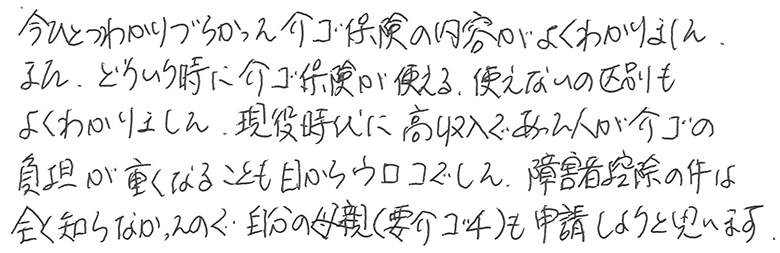 今ひとつわかりづらかった介ゴ保険の内容がよくわかりました.
また.どういう時に介ゴ保険が使える.使えないの区別も
よくわかりました.現役時代に高収入であった人が介ゴの
負担が重くなることも目からウロコでした.障害者控除の件は
全く知らなかったので自分の母親(要介ゴ4)も申請しようと思います.